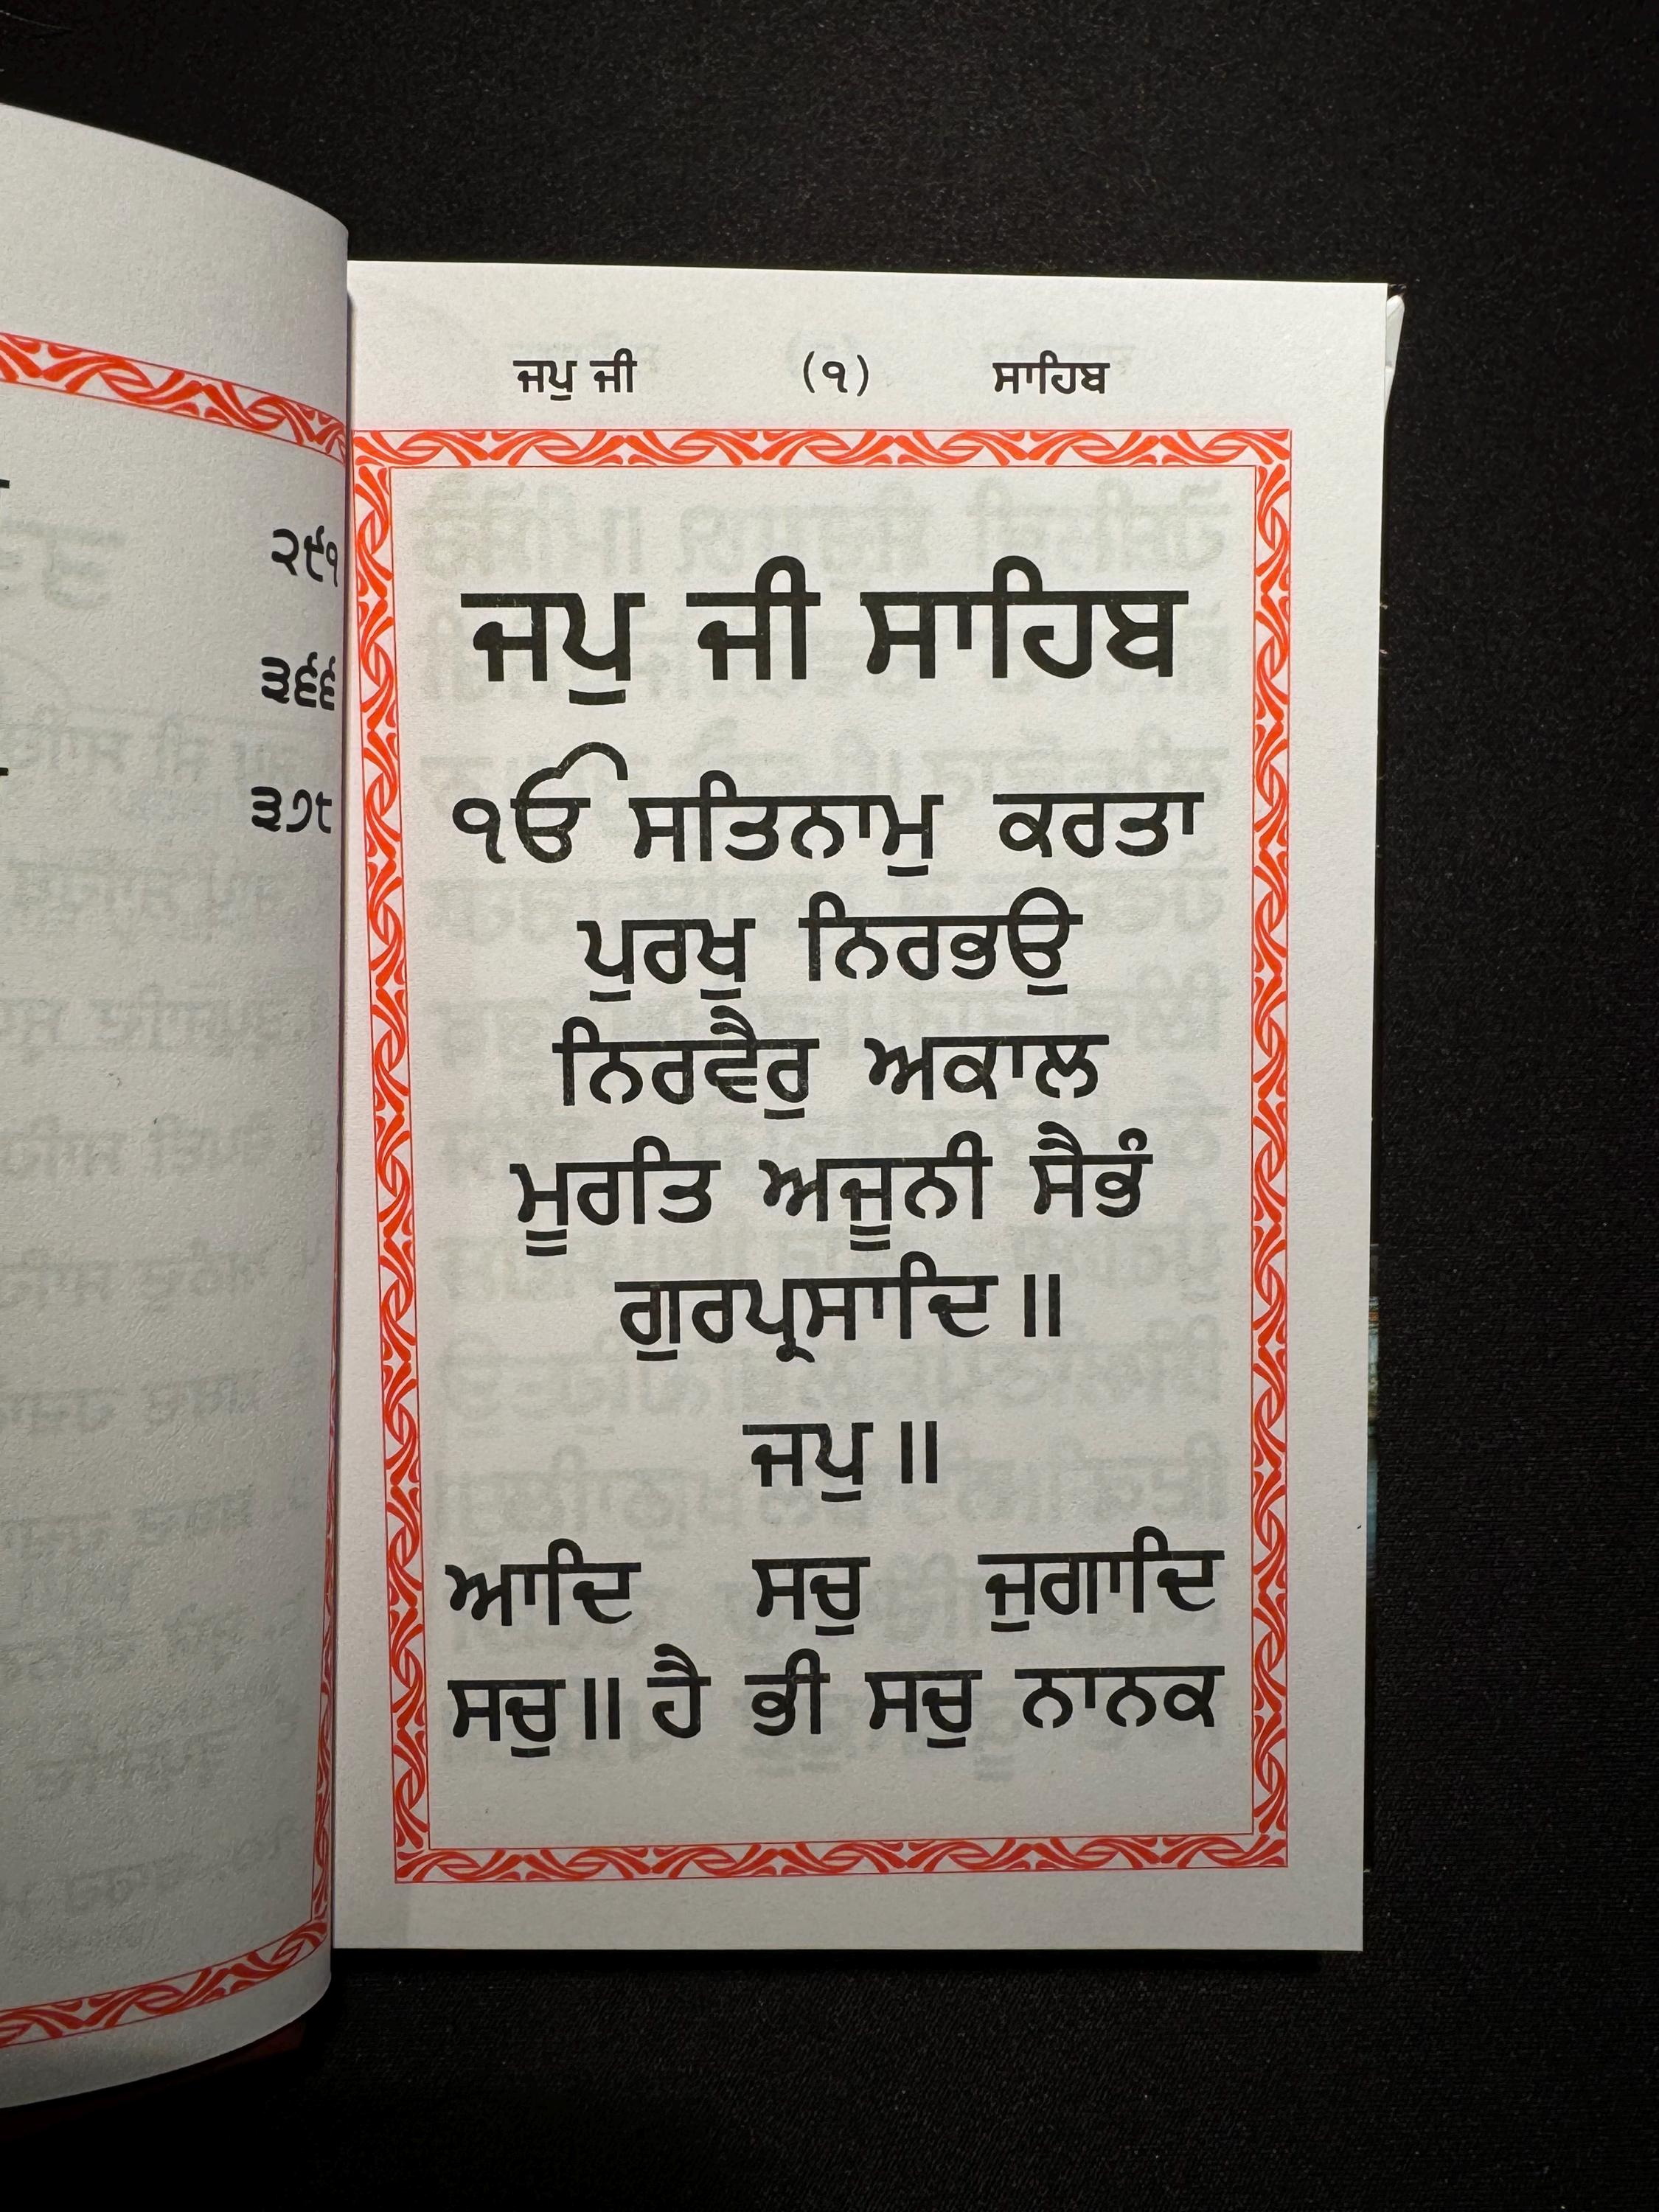 ੨੯੧
੩੬੬
੩੭੮
ਜਪੁ ਜੀ (੧) ਸਾਹਿਬ
ਜਪੁ ਜੀ ਸਾਹਿਬ
ੴ ਸਤਿਨਾਮੁ ਕਰਤਾ
ਪੁਰਖੁ ਨਿਰਭਉ
ਨਿਰਵੈਰੁ ਅਕਾਲ
ਮੂਰਤਿ ਅਜੂਨੀ ਸੈਭੰ
ਗੁਰਪ੍ਰਸਾਦਿ॥
ਜਪੁ॥
ਆਦਿ ਸਚੁ ਜੁਗਾਦਿ
ਸਚੁ॥ ਹੈ ਭੀ ਸਚੁ ਨਾਨਕ